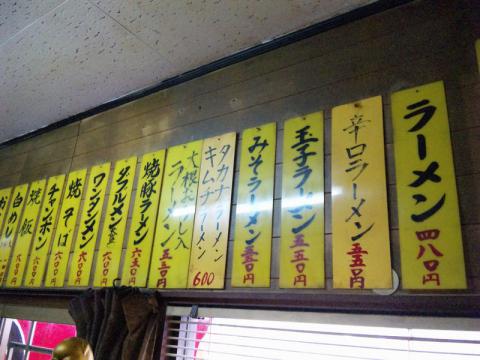 ラーメン 四八〇円
辛口ラーメン 五五〇円
玉子ラーメン 五五〇円
みそラーメン
タカナラーメン
キムチラーメン 600
大根おろし入
ラーメン 五五〇円
焼豚ラーメン 六五〇円
ワンタンメン 六〇〇円
焼そば 六〇〇円
チャンポン 六五〇円
焼飯
白めし